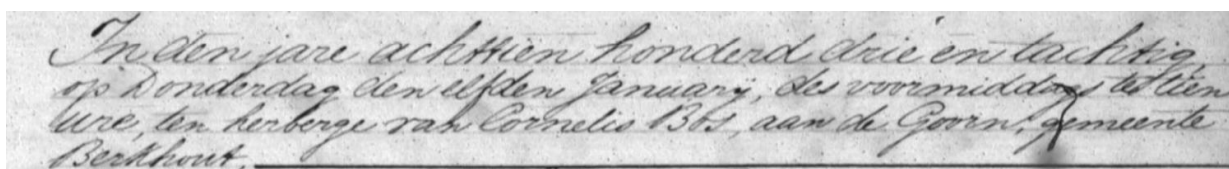 In den jare achttien honderd drie en tachtig,
op Donderdag den elfden January, des voormiddags te tien
ure, ten herberge van Cornelis Bos, aan de Goorn, gemeente
Berkhout.